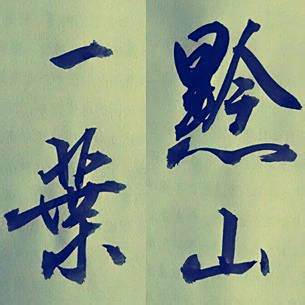 黔山
一葉